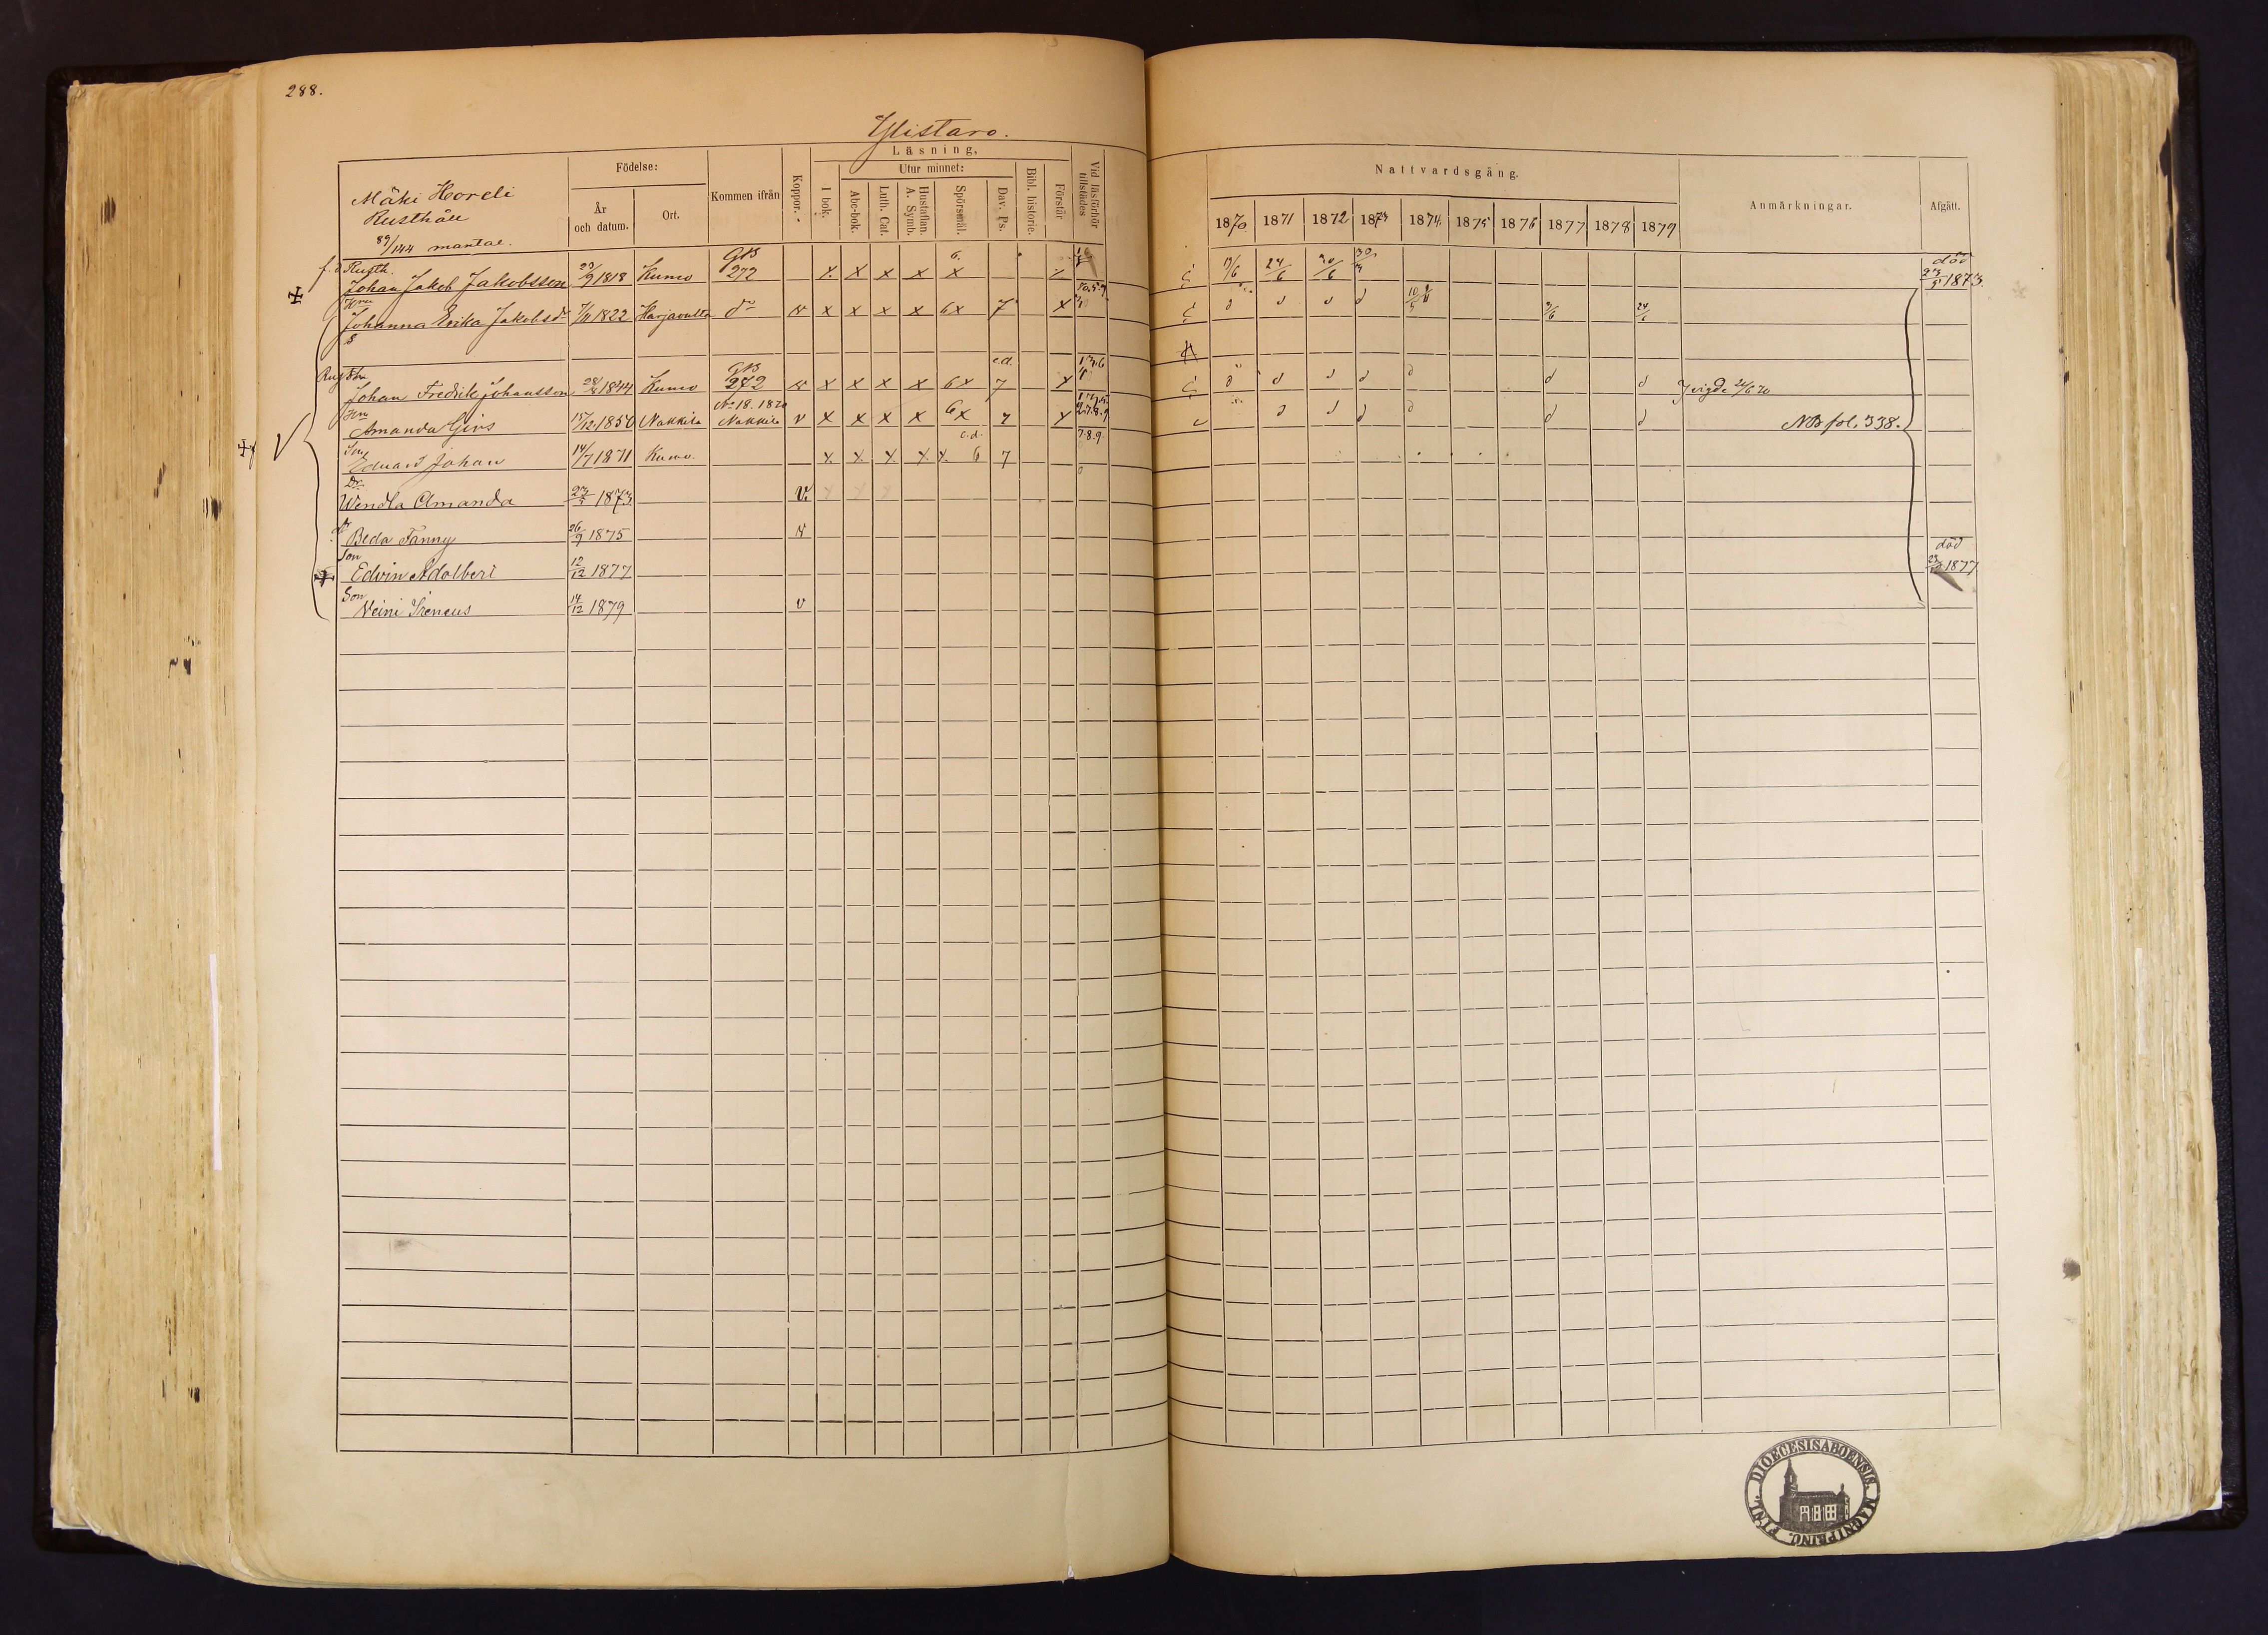 288.
Ylistaro.
Mäki Horeli
Rusthåll
89/144 mantal.
Födelse:
År och datum.
Ort.
Kommen ifrån
Koppor.
Läsning,
I bok.
Utur minnet:
Abc-bok.
Luth. Cat.
Hustaflan. A. Symb.
Spörsmål.
Dav. Ps.
Bibl. historie.
Förstår
Vid läsförhör tillstädes
Nattvardsgång.
1870 1871 1872 1873 1874 1875 1876 1877 1878 1879
Anmärkningar.
Afgått.
f.d Rusth.
Johan Jakob Jakobsson 23/9 1818 Kumo GB 272 x x x x 6. x x 17/6 24/6 30/6 död 23/5 1873.
Hru
Johanna Erika Jakobsdr 1822 Harjavalta do v x x x x 6x 7 x d d d d 10/5 9/6
S
Rusth.
Johan Fredrik Johansson 28/2 1844 Kumo GB 272 v x x x x 6x e.d. 7 x d d d d d d d Vigde 24/6 70
Hru
Amanda Girs 15/12 1850 Nakkila No 18. 1870 Nakkila v x x x x 6x 7 x 2.7.8.9 d d d d d d NB fol. 338.
Son
Eduard Johan 14/7 1871 Kumo. x x x x x c.d. 6 7 7.8.9.
Dr.
Wendla Amanda 23/5 1873 v.
dr
Beda Fanny 26/9 1875 v
Son
Edvin Adolbert 12/12 1877 död 1877
Son
Veini Ireneus 14/12 1879 v
FINL. DIOECESIS ABOENSIS MAGNI PRINC.